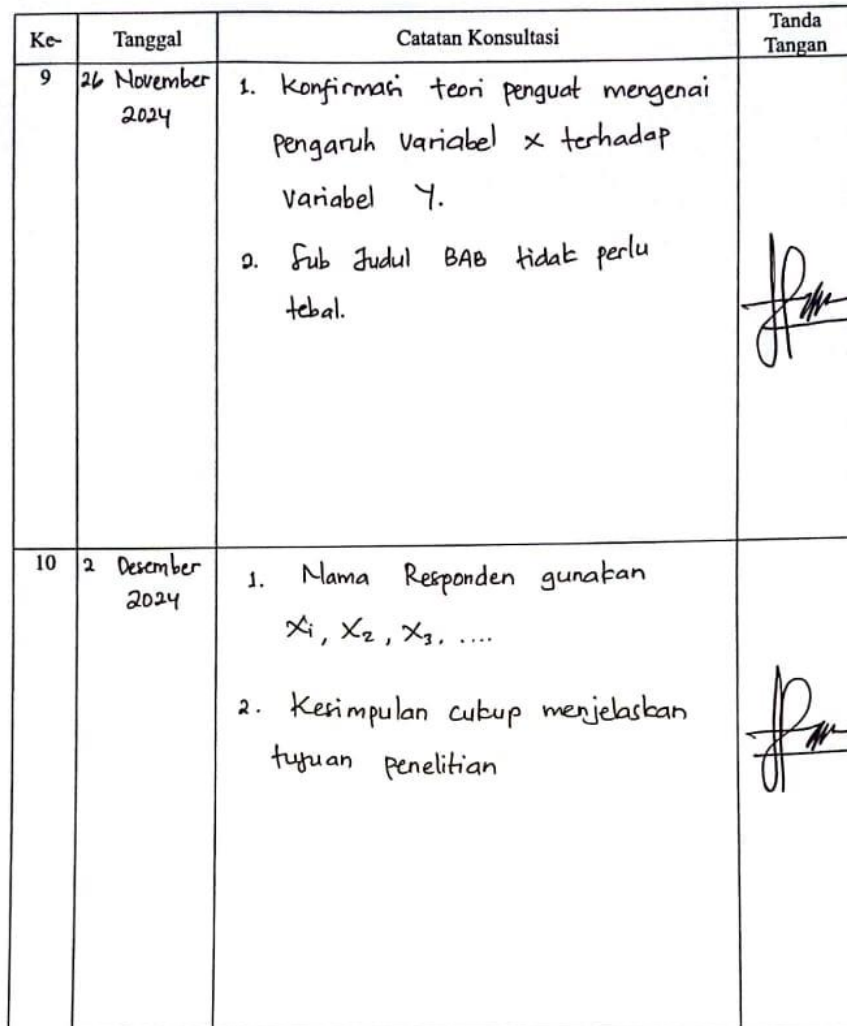 Ke- Tanggal Catatan Konsultasi Tanda Tangan
9 26 November 2024
1. Konfirmasi teori penguat mengenai
pengaruh variabel x terhadap
variabel Y.
2. Sub Judul BAB tidak perlu
tebal.
10 2 Desember 2024
1. Nama Responden gunakan
X1, X2, X3, ....
2. Kesimpulan cukup menjelaskan
tujuan penelitian